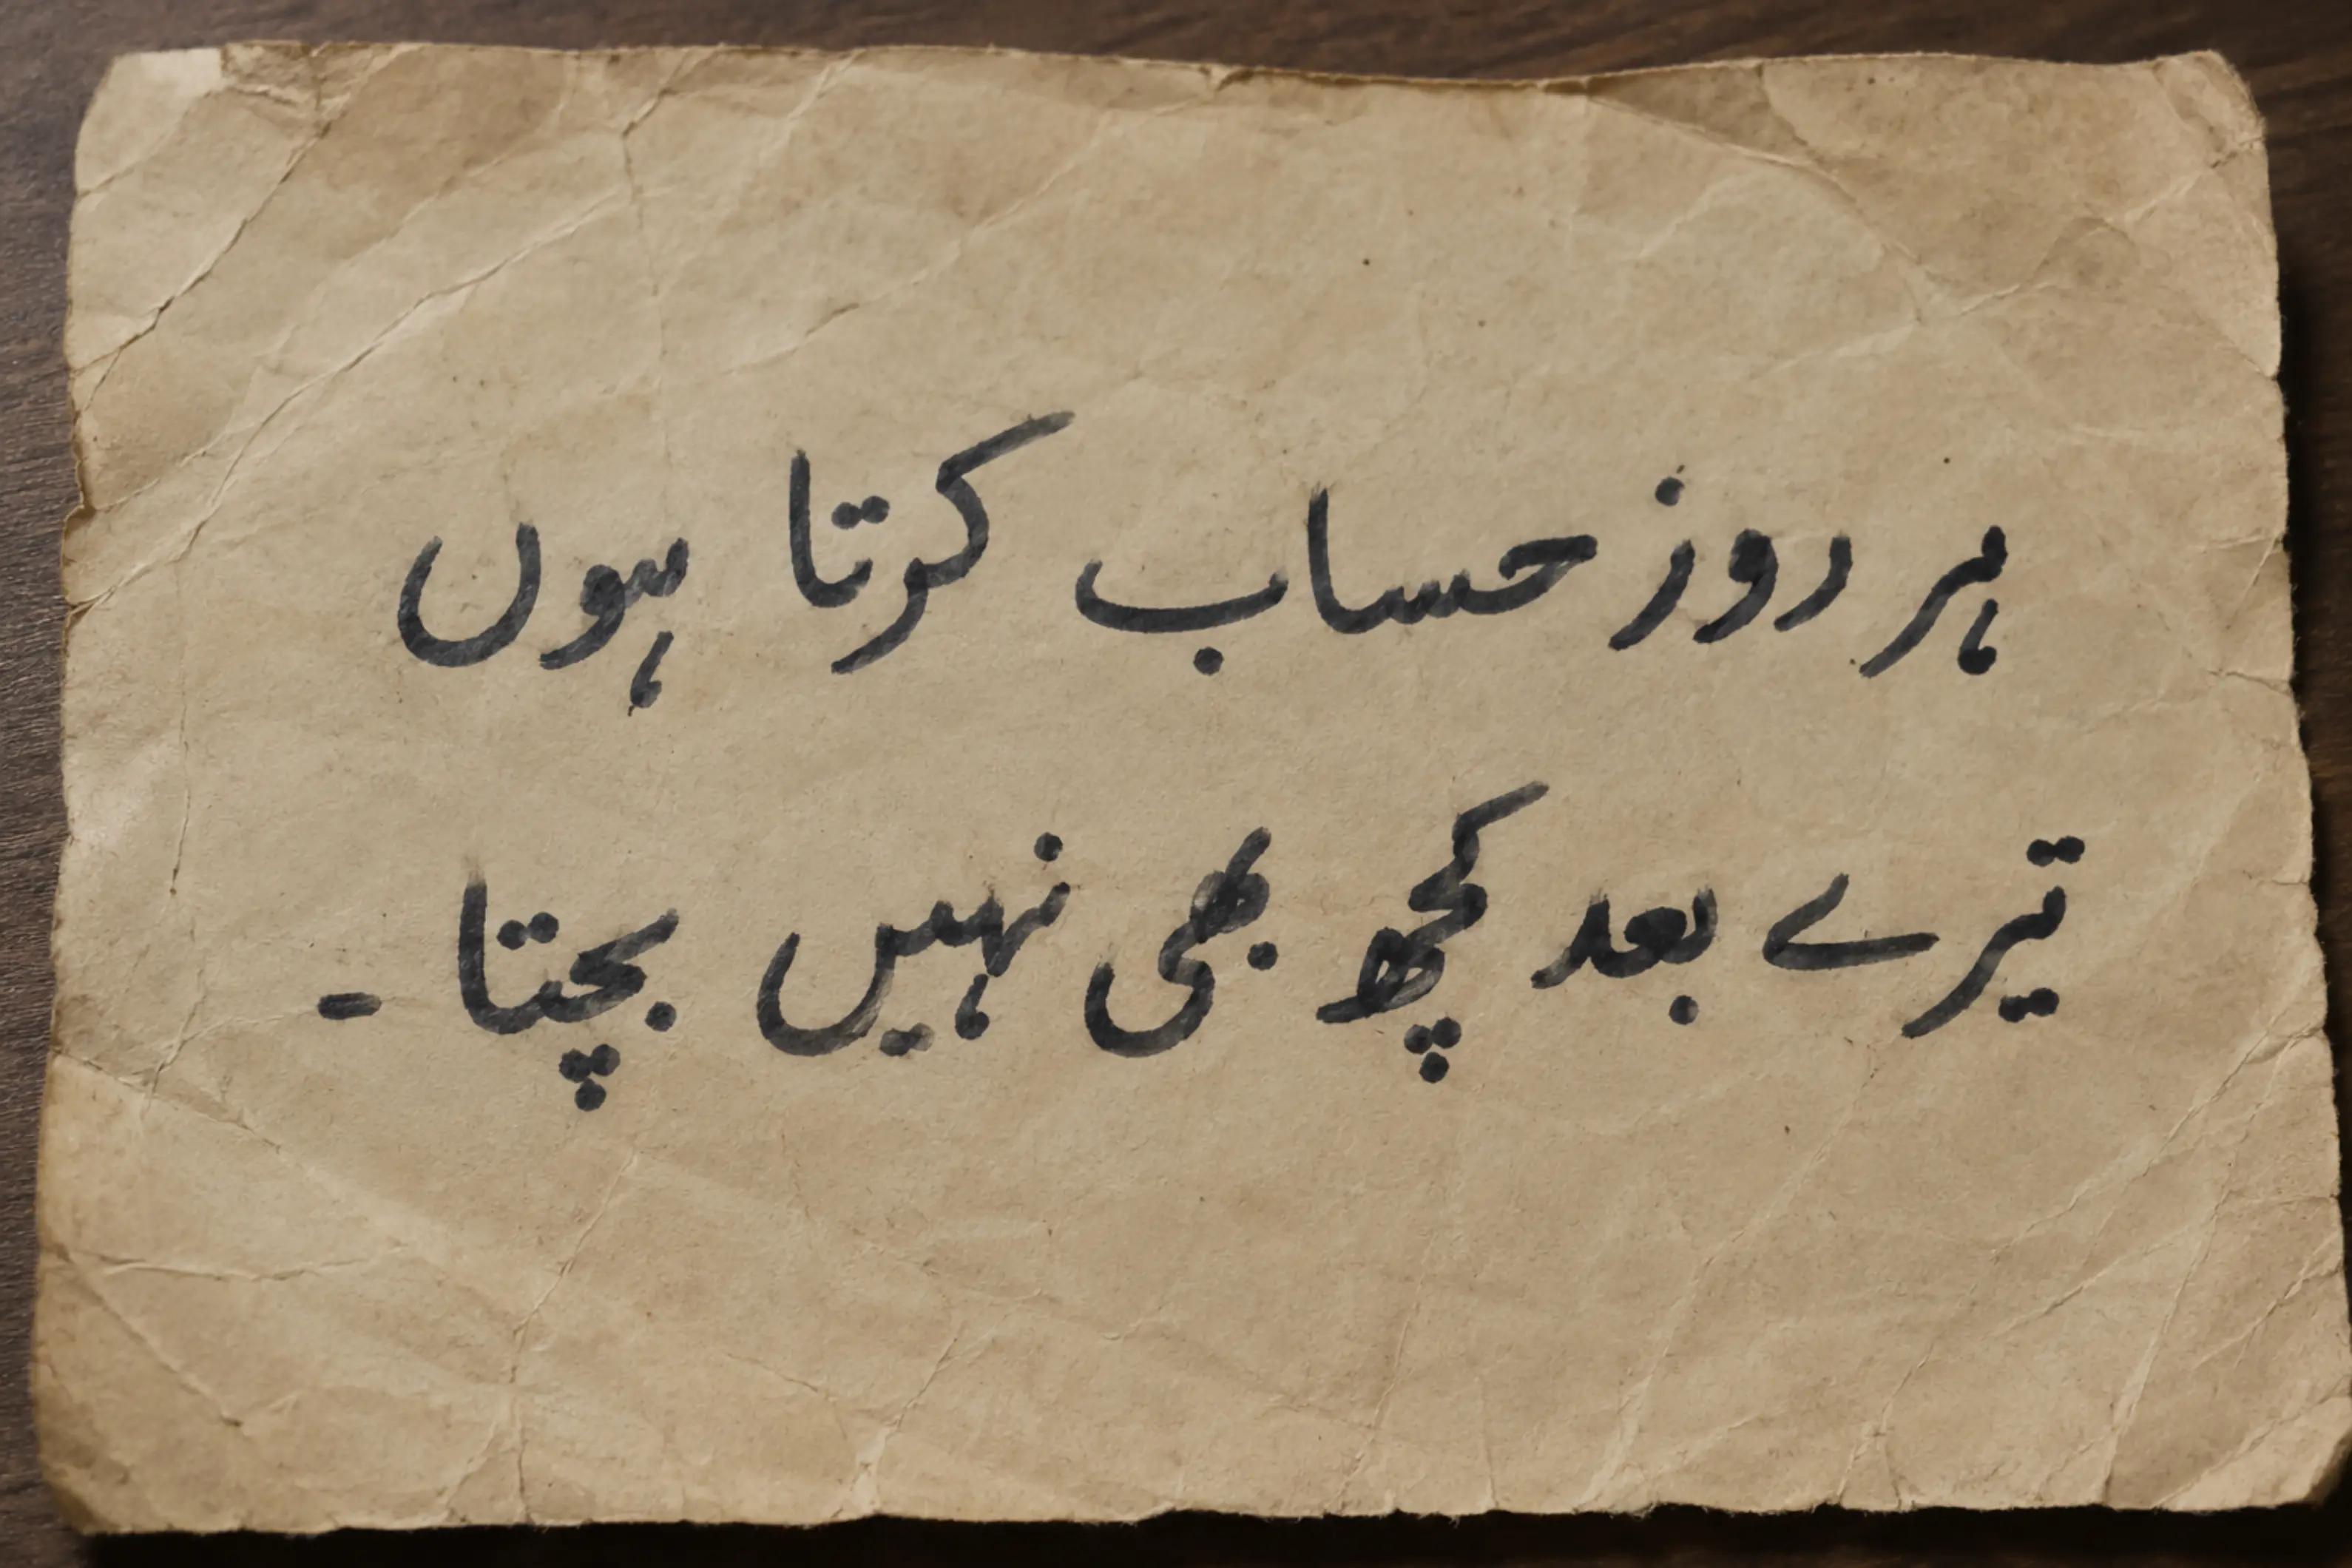 ہر روز حساب کرتا ہوں
تیرے بعد کچھ بھی نہیں بچتا ۔